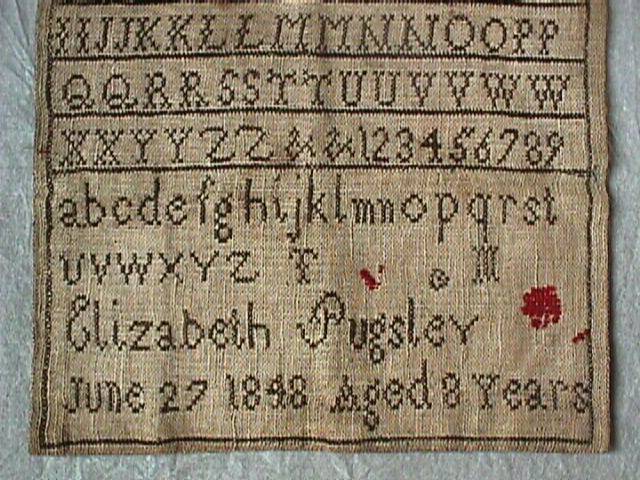 IIJJKKLLMMNNOOPP
QQRRSSTTUUVVWW
XXYYZZ&&123456789
abcdefghijklmnopqrst
uvwxyz T M
Elizabeth Pugsley
June 27 1848 Aged 8 Years